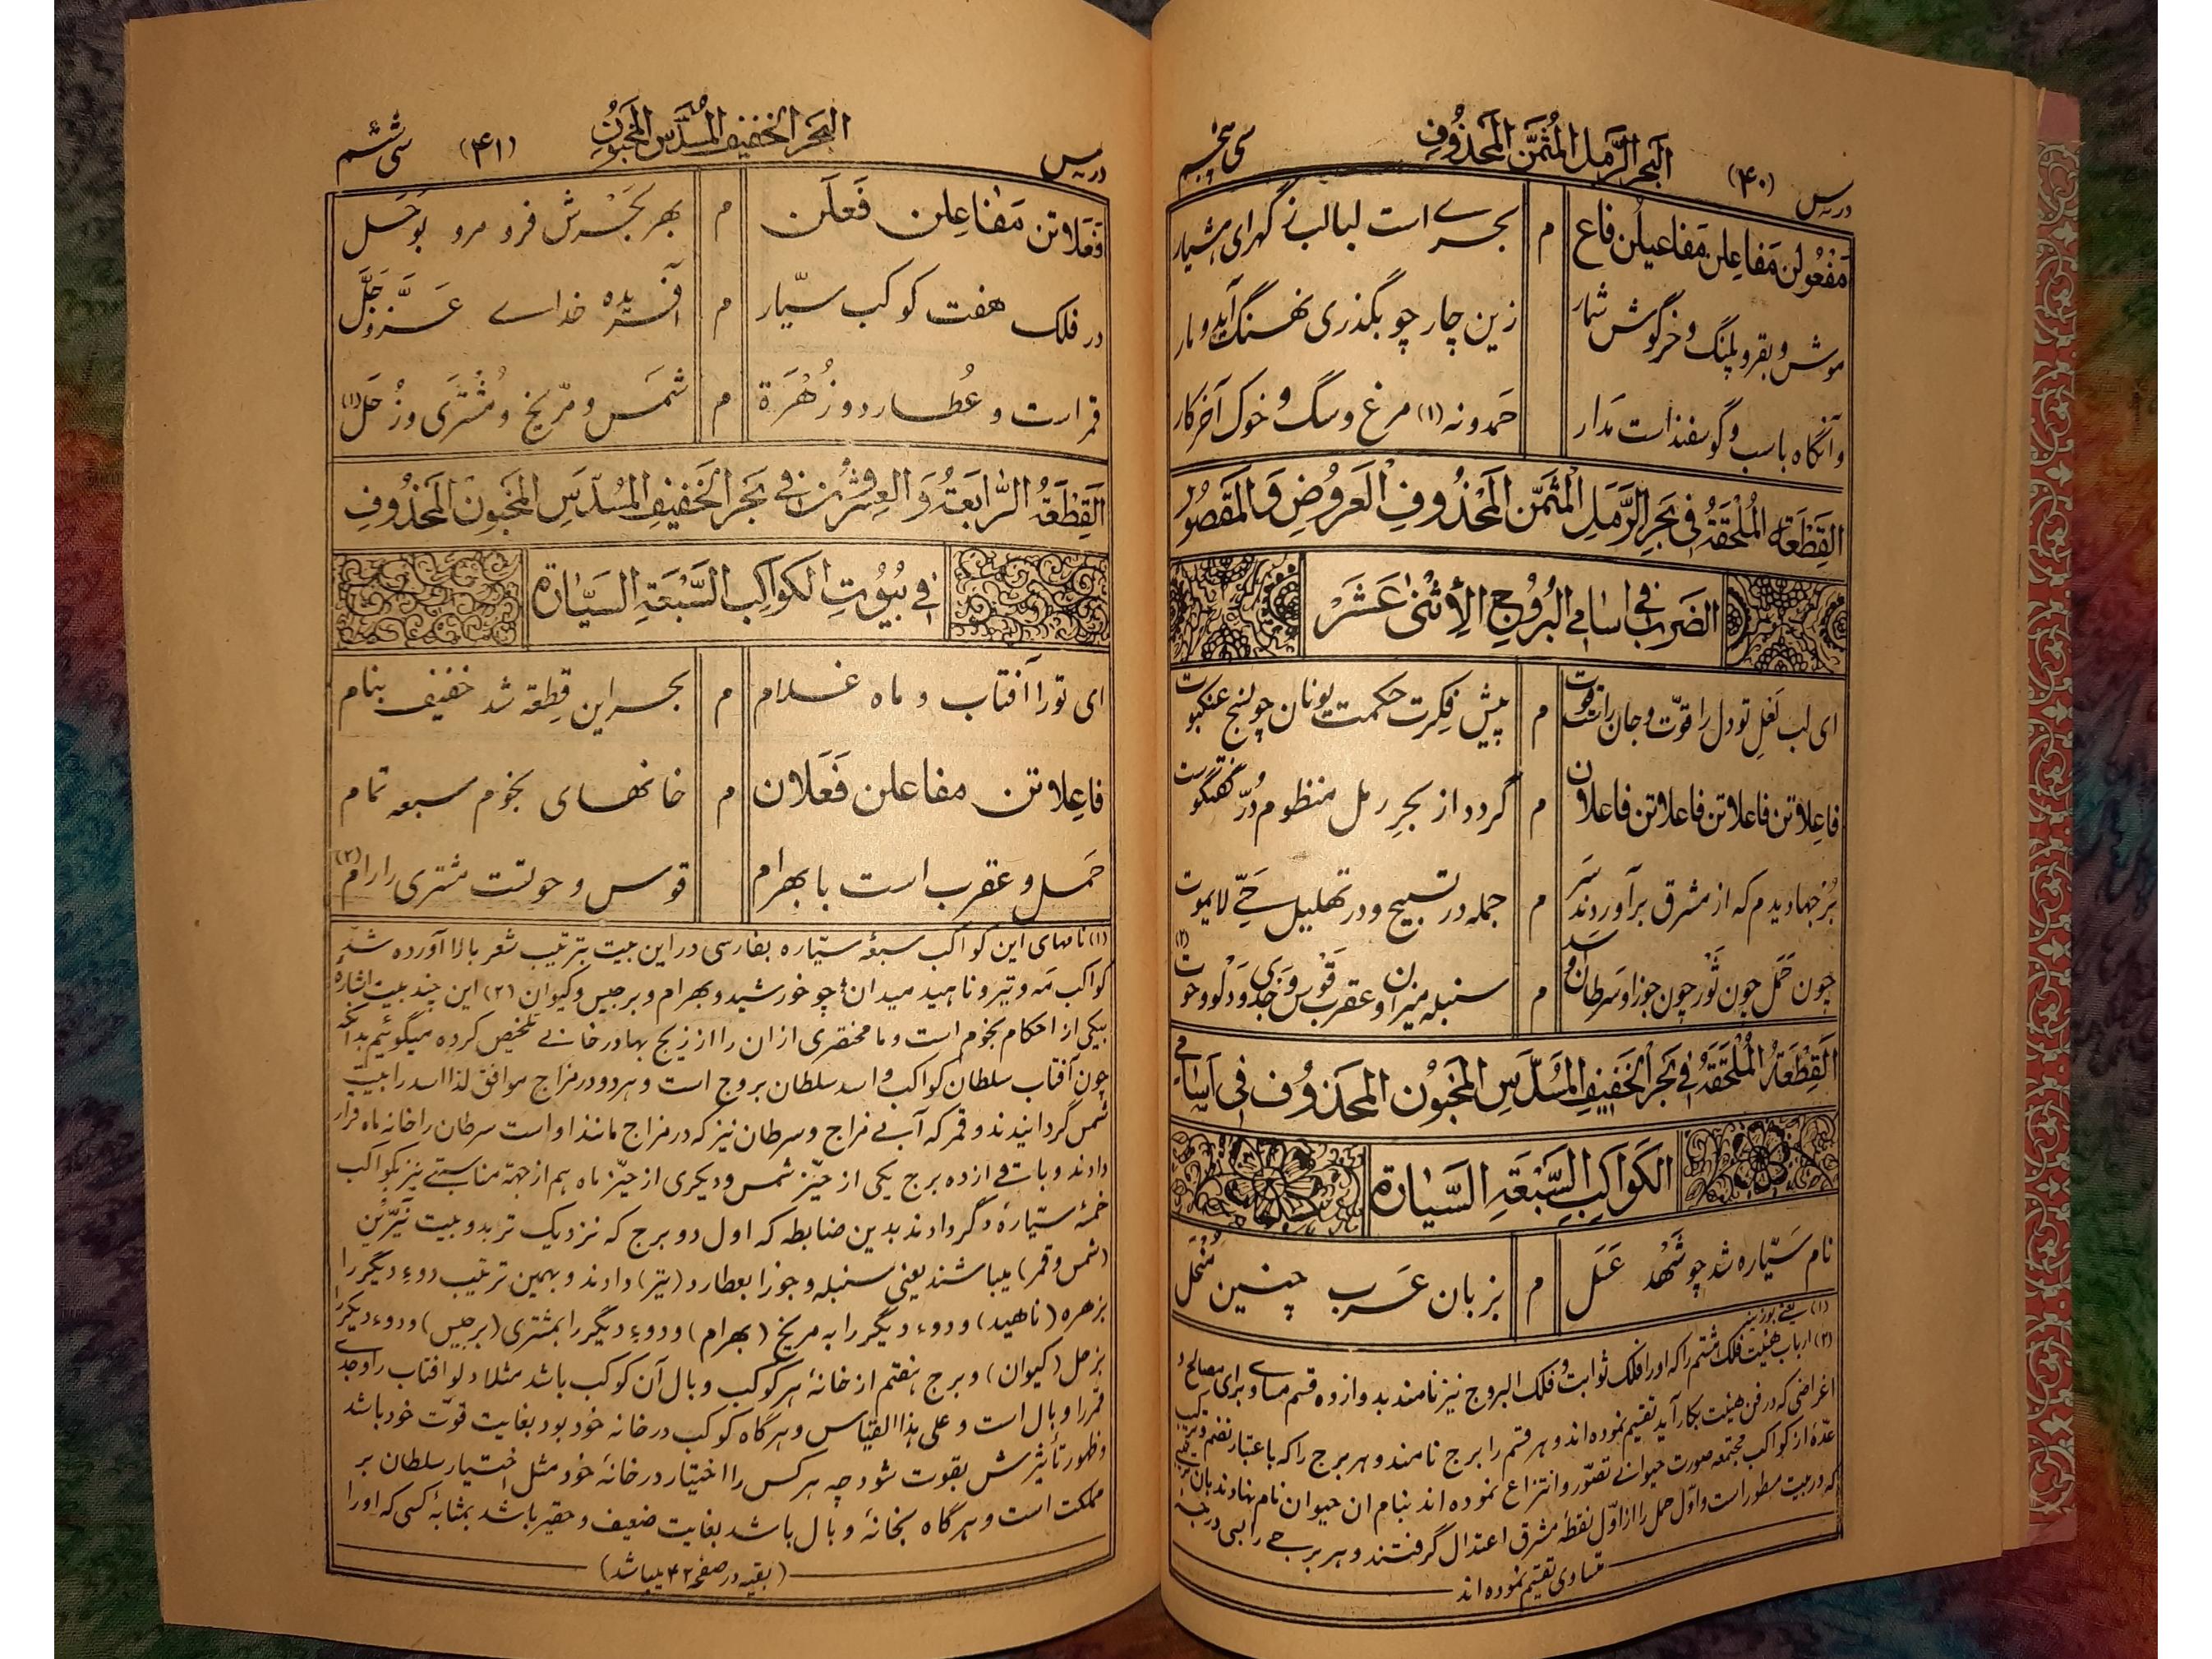 درس (۴۰) البَحرُ الرَّمَلِ المُثَمَّنِ المَحذُوفِ سی پنجم
مَفعُولن مَفاعِلن مَفاعیلن فاع م بحرے است لبالب ز گهر ای هشیار
موش و بقر و پلنگ و خرگوش شمار زین چار چو بگذری نهنگ آید و مار
و آنگاه باسب و گوسفند است مَدار حمدونه (۱) مرغ و سگ و خوک آخر کار
القِطعَةُ المُلحَقَةُ فی بَحرِ الرَّمَلِ المُثَمَّن المَحذُوفِ العَروُضِ وَالمَقصُورِ
الضَربِ فی اسامی البُروُجِ الأِثنی عَشَر
ای لب لَعلِ تو دل را قوّت و جان را قوت م پیش فِکرت حکمت یونان چو نسج عنکبوت
فاعِلاتن فاعلاتن فاعلاتن فاعلان م گردد از بحرِ رمل منظوم دُرّ گفتگوت
بُرجها دیدم که از مشرق برآوردند سَر م جمله در تسبیح و در تهلیل حَیّ لایموت
چون حَمَل چون ثَور چون جوزا و سَرطان و اسد م سنبله میزان و عقرب قَوس و جَدی و دَلو و حوت (۲)
القِطعَةُ المُلحَقَةُ فی بَحرِ الخَفیفِ المُسَدَّسِ المَخبوُن المَحذوُف فی اَسامی
الکَواکِبِ السَّبعَةِ السَّیارة
نام سَیّاره شد چو شَهْد عَسَل م بزبان عَرَب چنین مُنحَل
(۱) یعنے بوزینه
(۲) ارباب هیئت فلک هشتم را که او را فلک ثوابت و فلک البروج نیز نامند بدوازده قسم مساوے برای مصالح و
اغراضی که در فن هیئت بکار آید تقسیم نموده اند و هر قسم را برج نامند و هر برج را که باعتبار نضم و ترکیب
عدّهٔ از کواکب مجتمعه صورت حیوانے تصوّر و انتزاع نموده اند بنام ان حیوان نام نهادند بان
که در بیت مسطور است و اوّل حمل را از اوّل نقطهٔ مشرق اعتدال گرفتند و هر برجے را بسی درجه
متساوی تقسیم نموده اند
درس البَحرُ الخَفیفِ المُسَدَّسِ المَخبوُنِ (۴۱) سی ششم
فَعَلاتن مَفاعِلن فَعَلَن م بهر بَحرش فرو مرو بوَحَل
در فلک هفت کوکب سیّار م آفریده خداے عَزَّوَجَلَّ
قمر است و عُطارد و زُهَرَة م شَمس و مرّیخ و مُشتَری و زُحَل (۱)
القِطعَةُ الرّابَعَةُ وَ العِشروُن فی بَحرِ الخَفیفِ المُسَدَّسِ المَخبوُن المَحذُوفِ
فی بُیُوتِ الکَواکِبِ السَّبْعَةِ السَیّارة
ای تو را آفتاب و ماه غلام م بحر این قِطعَه شد خفیف بنام
فاعِلاتن مفاعلن فَعَلان م خانهای نجوم سبعه تمام
حَمَل و عقرب است با بهرام قوس و حوتست مشتری را رام (۲)
(۱) نامهای این کواکب سبعهٔ سیّاره بفارسی در این بیت بترتیب شعر بالا آورده شد
کواکب مَه و تیر و ناهید میدان چو خورشید و بهرام و برجیس و کیوان (۲) این چند بیت اشاره
بیکی از احکام نجوم است و ما مختصری از ان را از زیج بهادر خانے تلخیص کرده میگوئیم بدانکه
چون آفتاب سلطان کواکب و اسد سلطان بروج است و هر دو در مزاج موافق لذا اسد را بیت
شمس گردانیدند و قمر که آبے مزاج و سرطان نیز که در مزاج مانند او است سرطان را خانه ماه قرار
دادند و باقے از ده برج یکی از حیّز شمس و دیگری از حیّز ماه هم از جهة مناسبتے نیز بکواکب
خمسهٔ ستیّارهٔ دگر دادند بدین ضابطه که اول دو برج که نزدیک تر بدو بیت نَیّرَین
(شمس و قمر) میباشند یعنی سنبله و جوزا بعطارد (تیر) دادند و بهمین ترتیب دوء دیگر را
بزهره (ناهید) و دوء دیگر را به مریخ (بهرام) و دوء دیگر را بمشتری (برجیس) و دوء دیگر را
بزحل (کیوان) و برج هفتم از خانهٔ هر کوکب وبال آن کوکب باشد مثلا دلو افتاب را و جدے
قمر را وبال است و علی هذا القیاس و هر گاه کوکب در خانه خود بود بغایت قوّت خود باشد
و ظهور تأثیرش بقوت شود چه هر کس را اختیار در خانهٔ خود مثل اختیار سلطان بر
مملکت است و هر گاه بخانهٔ وبال باشد بغایت ضعیف و حقیر باشد بمثابهٔ کسی که او را
(بقیه در صفحه ۴۲ میباشد)